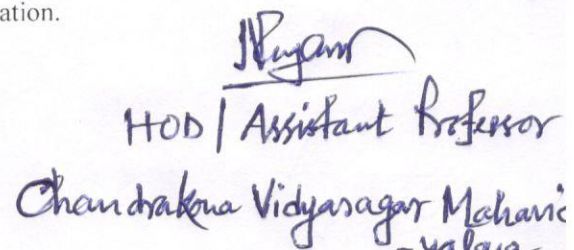 ation.
HOD | Assistant Professor
Chandrakona Vidyasagar Mahavid
-yalaya